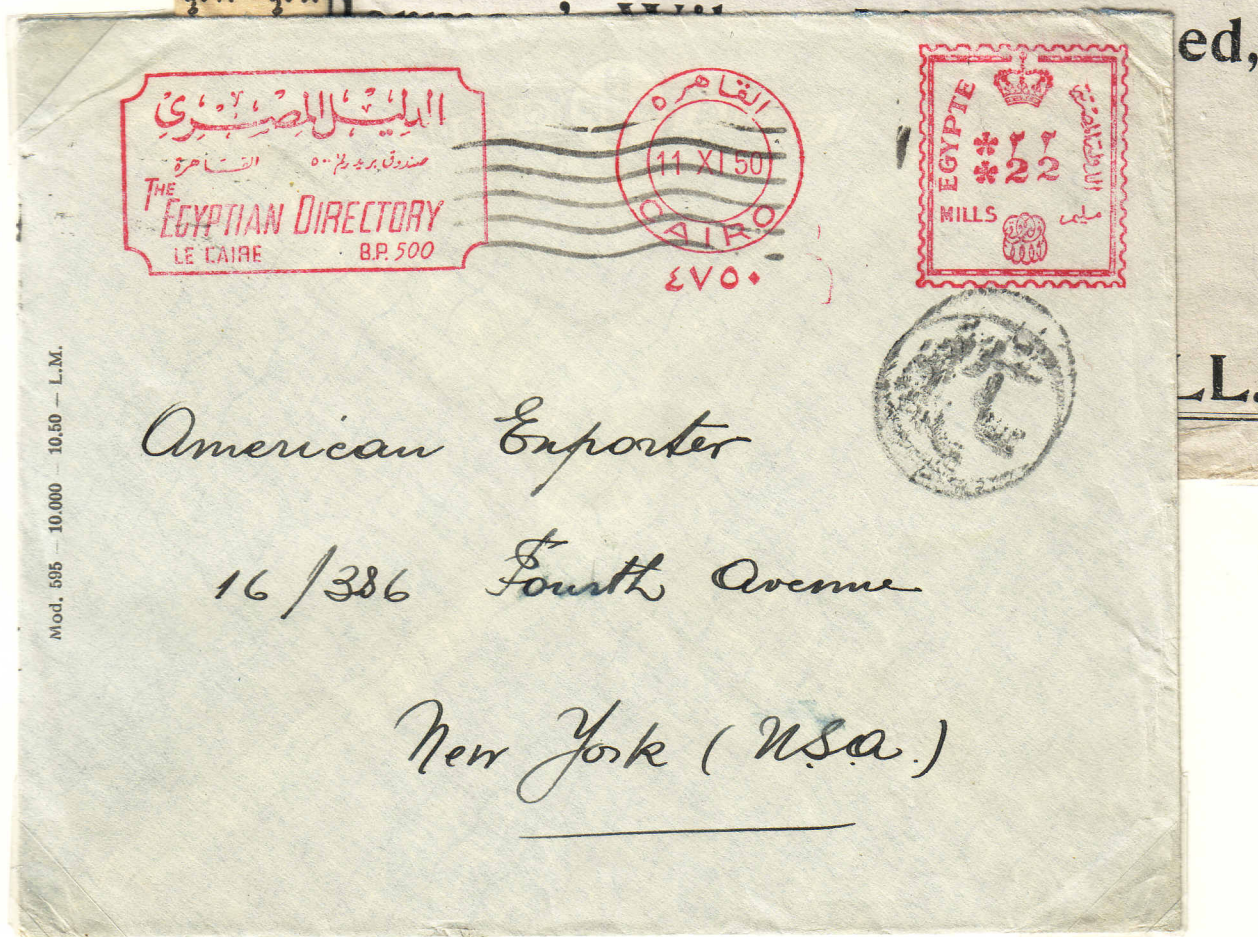 ed,
الدليل المصري
صندوق بريد رقم ٥٠٠ القاهرة
THE
EGYPTIAN DIRECTORY
LE CAIRE B.P. 500
القاهرة
11 XI 50
CAIRO
٤٧٥٠
EGYPTE
الدولة المصرية
*٢٢
*22
MILLS مليم
LL.
Mod. 595 — 10.000 — 10.50 — L.M.
American Exporter
16/386 Fourth Avenue
New York (U.S.A.)